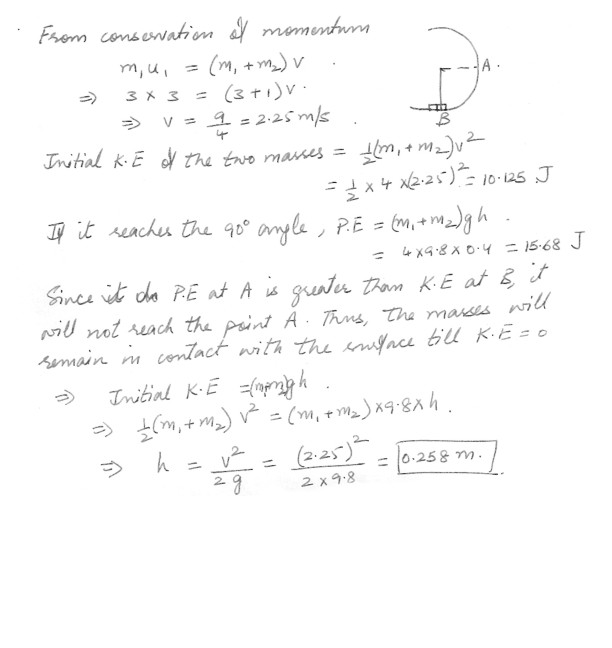 From conservation of momentum
m₁u₁ = (m₁ + m₂) v
⇒ 3 × 3 = (3+1) v.
⇒ v = 9/4 = 2.25 m/s
A.
B
Initial K.E of the two masses = 1/2 (m₁ + m₂) v²
= 1/2 × 4 × (2.25)² = 10.125 J
If it reaches the 90° angle, P.E = (m₁+m₂)gh.
= 4 × 9.8 × 0.4 = 15.68 J
Since P.E at A is greater than K.E at B, it
will not reach the point A. Thus, the masses will
remain in contact with the surface till K.E = 0
⇒ Initial K.E = (m₁+m₂)gh.
⇒ 1/2 (m₁ + m₂) v² = (m₁ + m₂) × 9.8 × h.
⇒ h = v²/2g = (2.25)²/2 × 9.8 = 0.258 m.